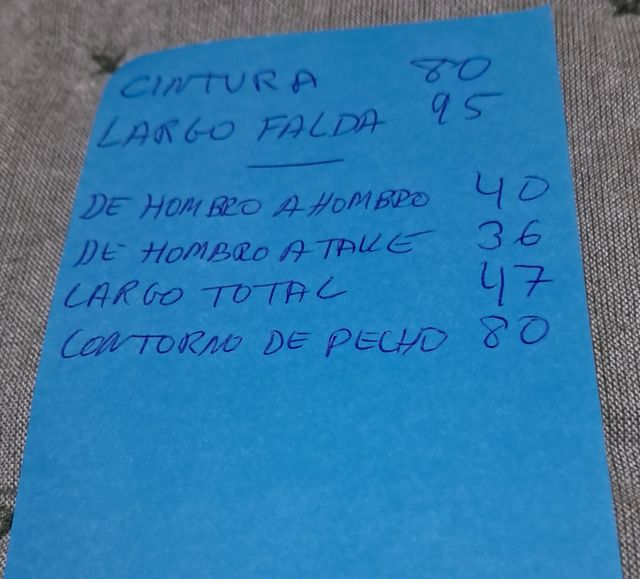 CINTURA 80
LARGO FALDA 95
DE HOMBRO A HOMBRO 40
DE HOMBRO A TALLE 36
LARGO TOTAL 47
CONTORNO DE PECHO 80